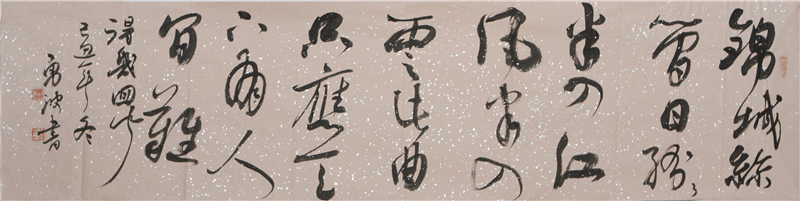 錦城絲
管日紛々
半入江
風半入
雲此曲
只應天
上有人
間難
得幾回聞
己丑年冬
書